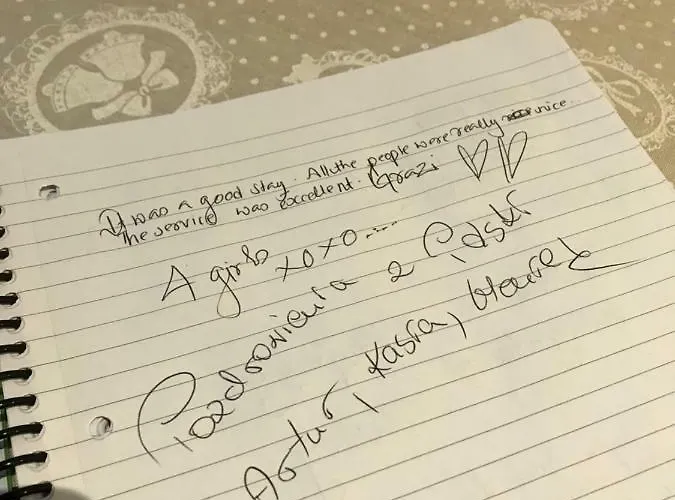 It was a good stay. All the people were really nice...
The service was excellent. Grazi ♡♡
4 girls xoxo....
Pozdrowienia z Polski
Artur, Kasia,